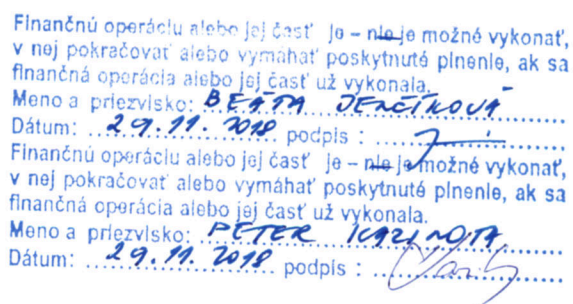 Finančnú operáciu alebo jej časť je – nie je možné vykonať,
v nej pokračovať alebo vymáhať poskytnuté plnenie, ak sa
finančná operácia alebo jej časť už vykonala.
Meno a priezvisko: BEÁTA
Dátum: 29.11.2018 podpis :
Finančnú operáciu alebo jej časť je – nie je možné vykonať,
v nej pokračovať alebo vymáhať poskytnuté plnenie, ak sa
finančná operácia alebo jej časť už vykonala.
Meno a priezvisko: PETER
Dátum: 29.11.2018 podpis :